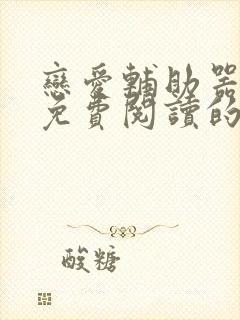 戀愛輔助器
免費閱讀的
酸糖